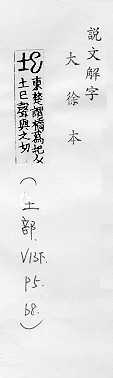 說文解字
大徐本
東楚謂橋爲圯从
土巳聲與之切
(土部.
V13下.
P5.
68.)